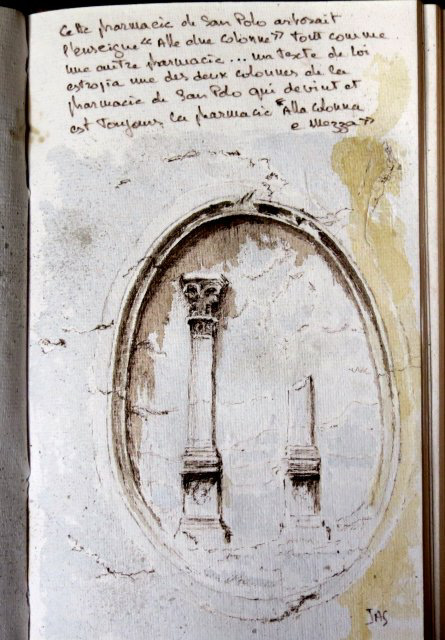 Cette pharmacie de San Polo arborait
l'enseigne "Alle due Colonne" tout comme
une autre pharmacie ... un texte de loi
estropia une des deux colonnes de la
pharmacie de San Polo qui devint et
est toujours la pharmacie "Alla Colonna
e Mezza"
JAS